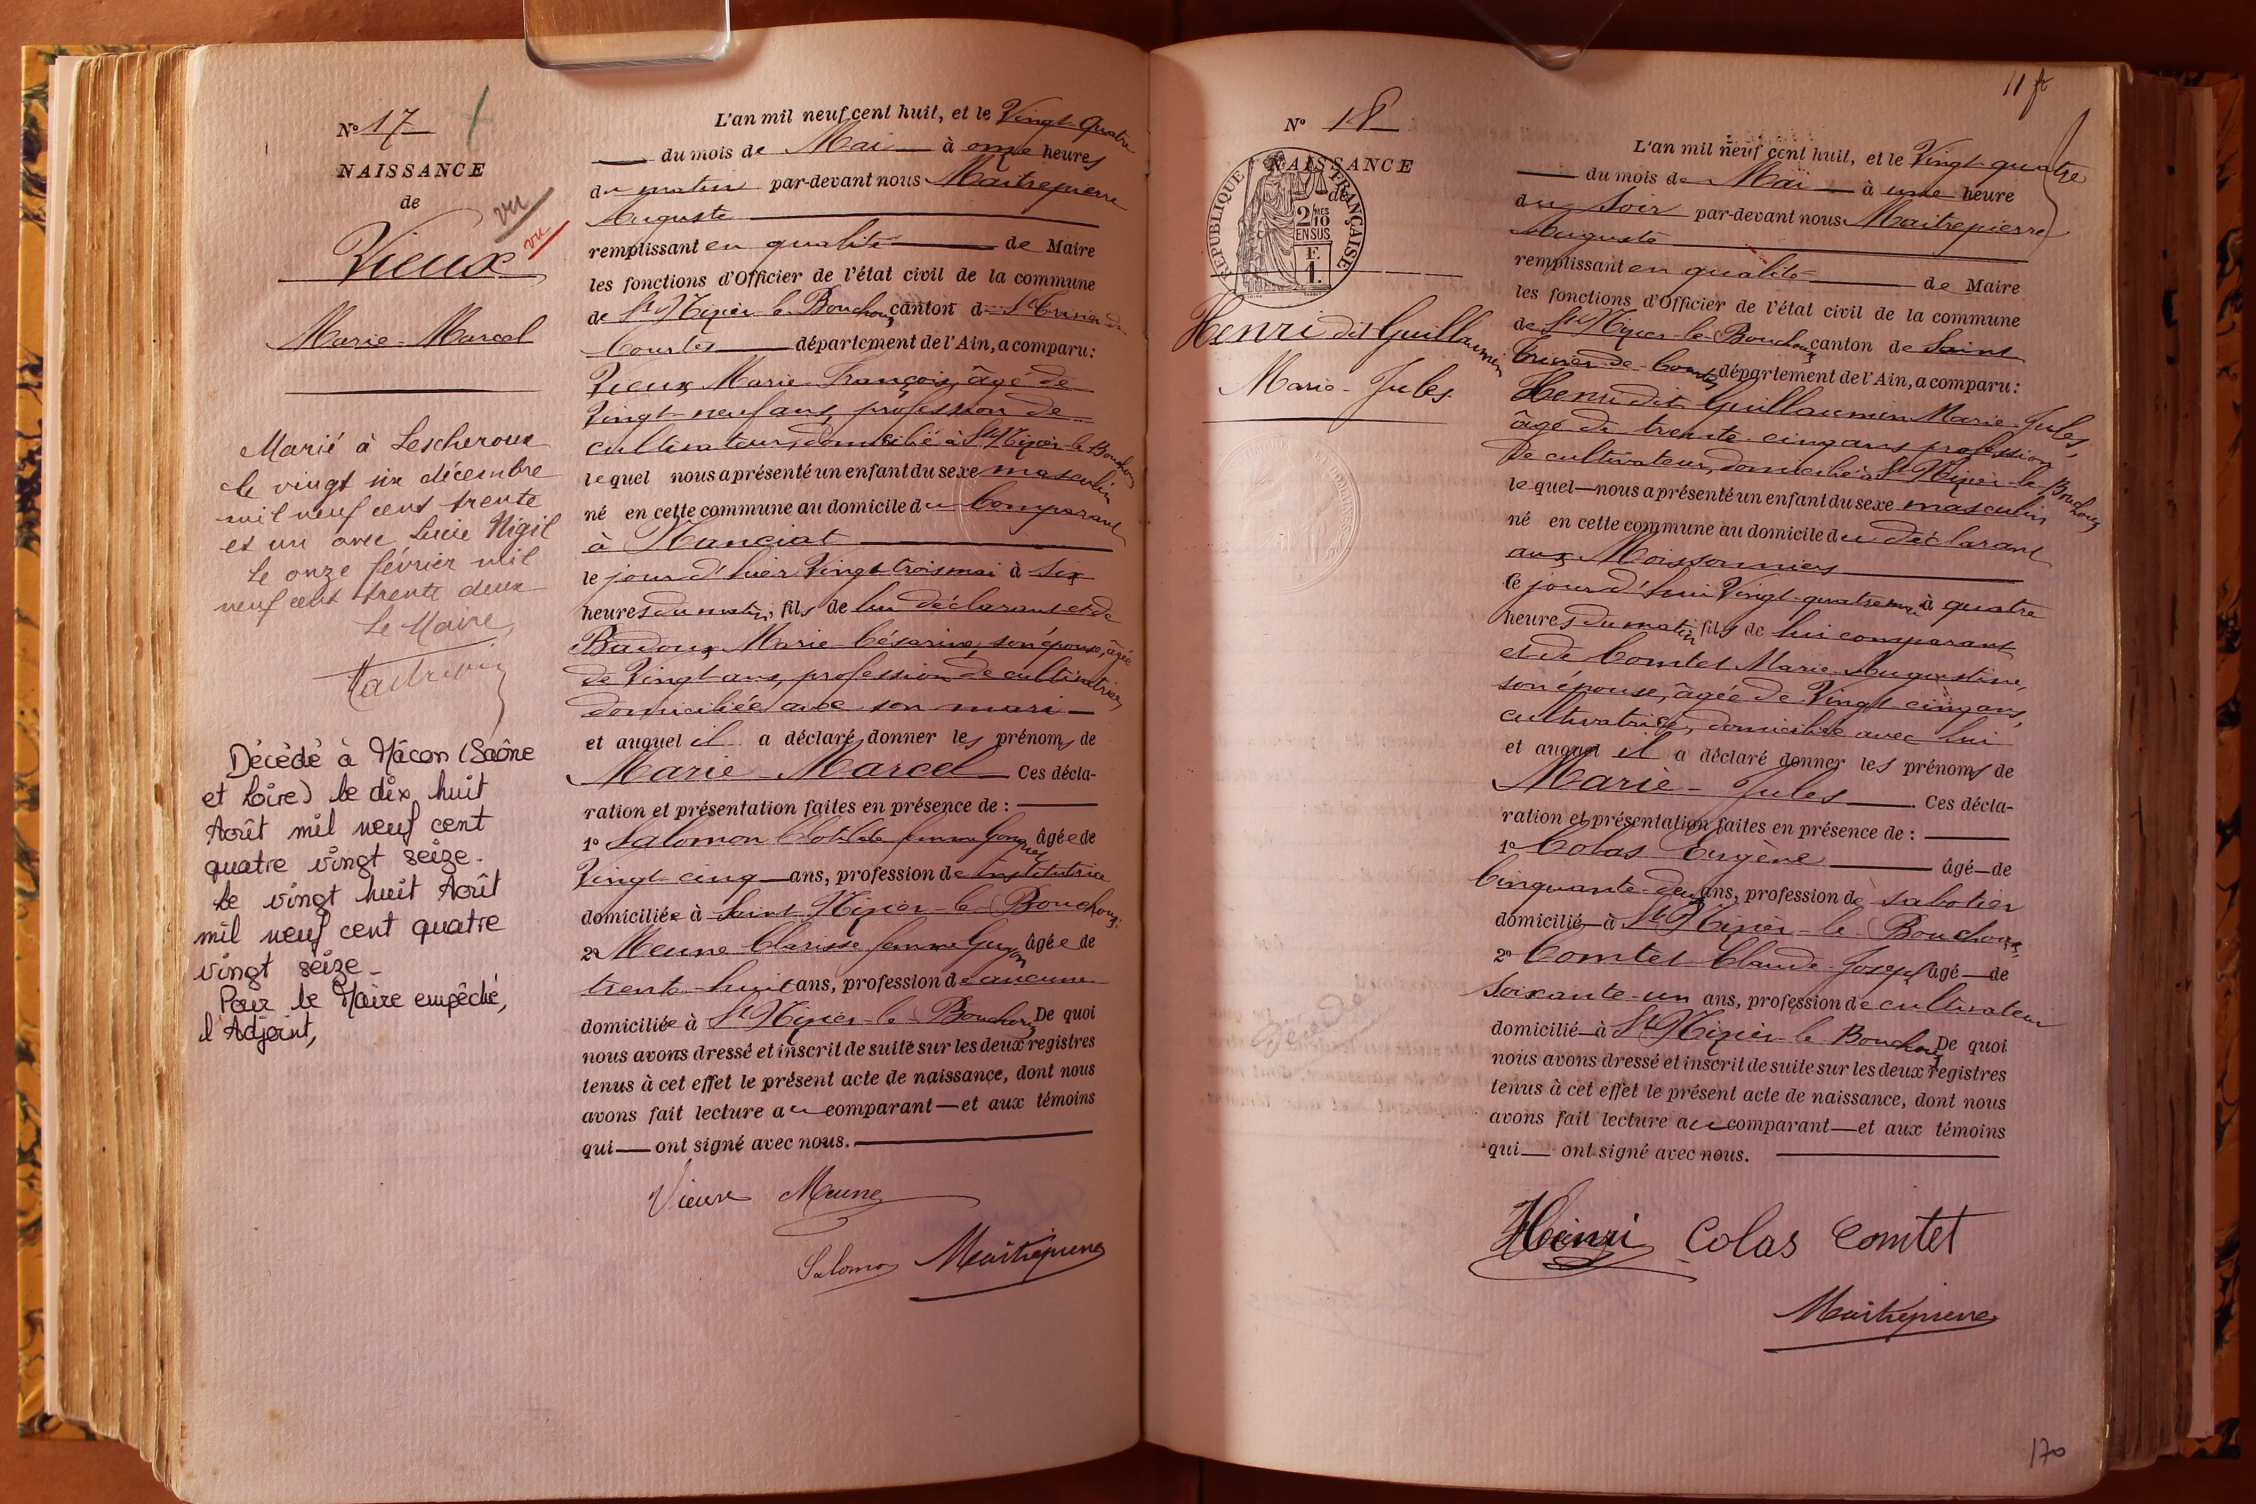 N° 17
NAISSANCE
de
vu
vu
Vieux
Marie-Marcel
Marié à Lescheroux
le vingt six décembre
mil neuf cent trente
et un avec Lucie Nigil
Le onze février mil
neuf cent trente deux
Le Maire,
Décédé à Mâcon (Saône
et Loire) le dix huit
Août mil neuf cent
quatre vingt seize.
Le vingt huit Août
mil neuf cent quatre
vingt seize.
Pour le Maire empêché,
l'Adjoint,
L'an mil neuf cent huit, et le Vingt-Quatre
du mois de Mai à onze heures
du matin par-devant nous Maitrepierre
Auguste
remplissant en qualité de Maire
les fonctions d'Officier de l'état civil de la commune
de St Nizier-le-Bouchoux canton de St Trivier-de
Courtes département de l'Ain, a comparu:
Vieux Marie-François, âgé de
Vingt-neuf ans, profession de
cultivateur, domicilié à St Nizier-le-Bouchoux
lequel nous a présenté un enfant du sexe masculin
né en cette commune au domicile du Comparant
à Ranciat
le jour d'hier Vingt-trois mai à six
heures du matin, fils de lui déclarant et de
Badoux Marie Césarine, son épouse, âgée
de Vingt ans, profession de cultivatrice
domiciliée avec son mari
et auquel il a déclaré donner les prénoms de
Marie-Marcel Ces décla-
ration et présentation faites en présence de :
1° Salomon Clotilde femme âgée de
Vingt-cinq ans, profession de institutrice
domiciliée à Saint Nizier-le-Bouchoux;
2° Meune Clarisse femme Guyon âgée de
trente-huit ans, profession de aucune
domiciliée à St Nizier-le-Bouchoux De quoi
nous avons dressé et inscrit de suite sur les deux registres
tenus à cet effet le présent acte de naissance, dont nous
avons fait lecture au comparant et aux témoins
qui ont signé avec nous.
Vieux Meune
Salomon Maitrepierre
11 f
N° 18
NAISSANCE
de
RÉPUBLIQUE FRANÇAISE
2/10 MES
EN SUS
F.
1.
Henri dit Guillaumin
Marie-Jules
L'an mil neuf cent huit, et le Vingt-quatre
du mois de Mai à une heure
du soir par-devant nous Maitrepierre
Auguste
remplissant en qualité de Maire
les fonctions d'Officier de l'état civil de la commune
de St Nizier-le-Bouchoux canton de Saint
Trivier-de-Courtes département de l'Ain, a comparu:
Henri dit Guillaumin Marie-Jules,
âgé de trente-cinq ans profession
de cultivateur, domicilié à St Nizier-le-Bouchoux
lequel nous a présenté un enfant du sexe masculin
né en cette commune au domicile du déclarant
aux Moissonniers
le jour d'hui Vingt-quatre mai à quatre
heures du matin fils de lui comparant
et de Comtet Marie-Augustine,
son épouse, âgée de Vingt cinq ans,
cultivatrice, domiciliée avec lui
et auquel il a déclaré donner les prénoms de
Marie-Jules Ces décla-
ration et présentation faites en présence de :
1° Colas Eugène âgé de
Cinquante-deux ans, profession de sabotier
domicilié à St Nizier-le-Bouchoux,
2° Comtet Claude-Joseph âgé de
Soixante-un ans, profession de cultivateur
domicilié à St Nizier-le-Bouchoux De quoi
nous avons dressé et inscrit de suite sur les deux registres
tenus à cet effet le présent acte de naissance, dont nous
avons fait lecture au comparant et aux témoins
qui ont signé avec nous.
Henri Colas Comtet
Maitrepierre
170